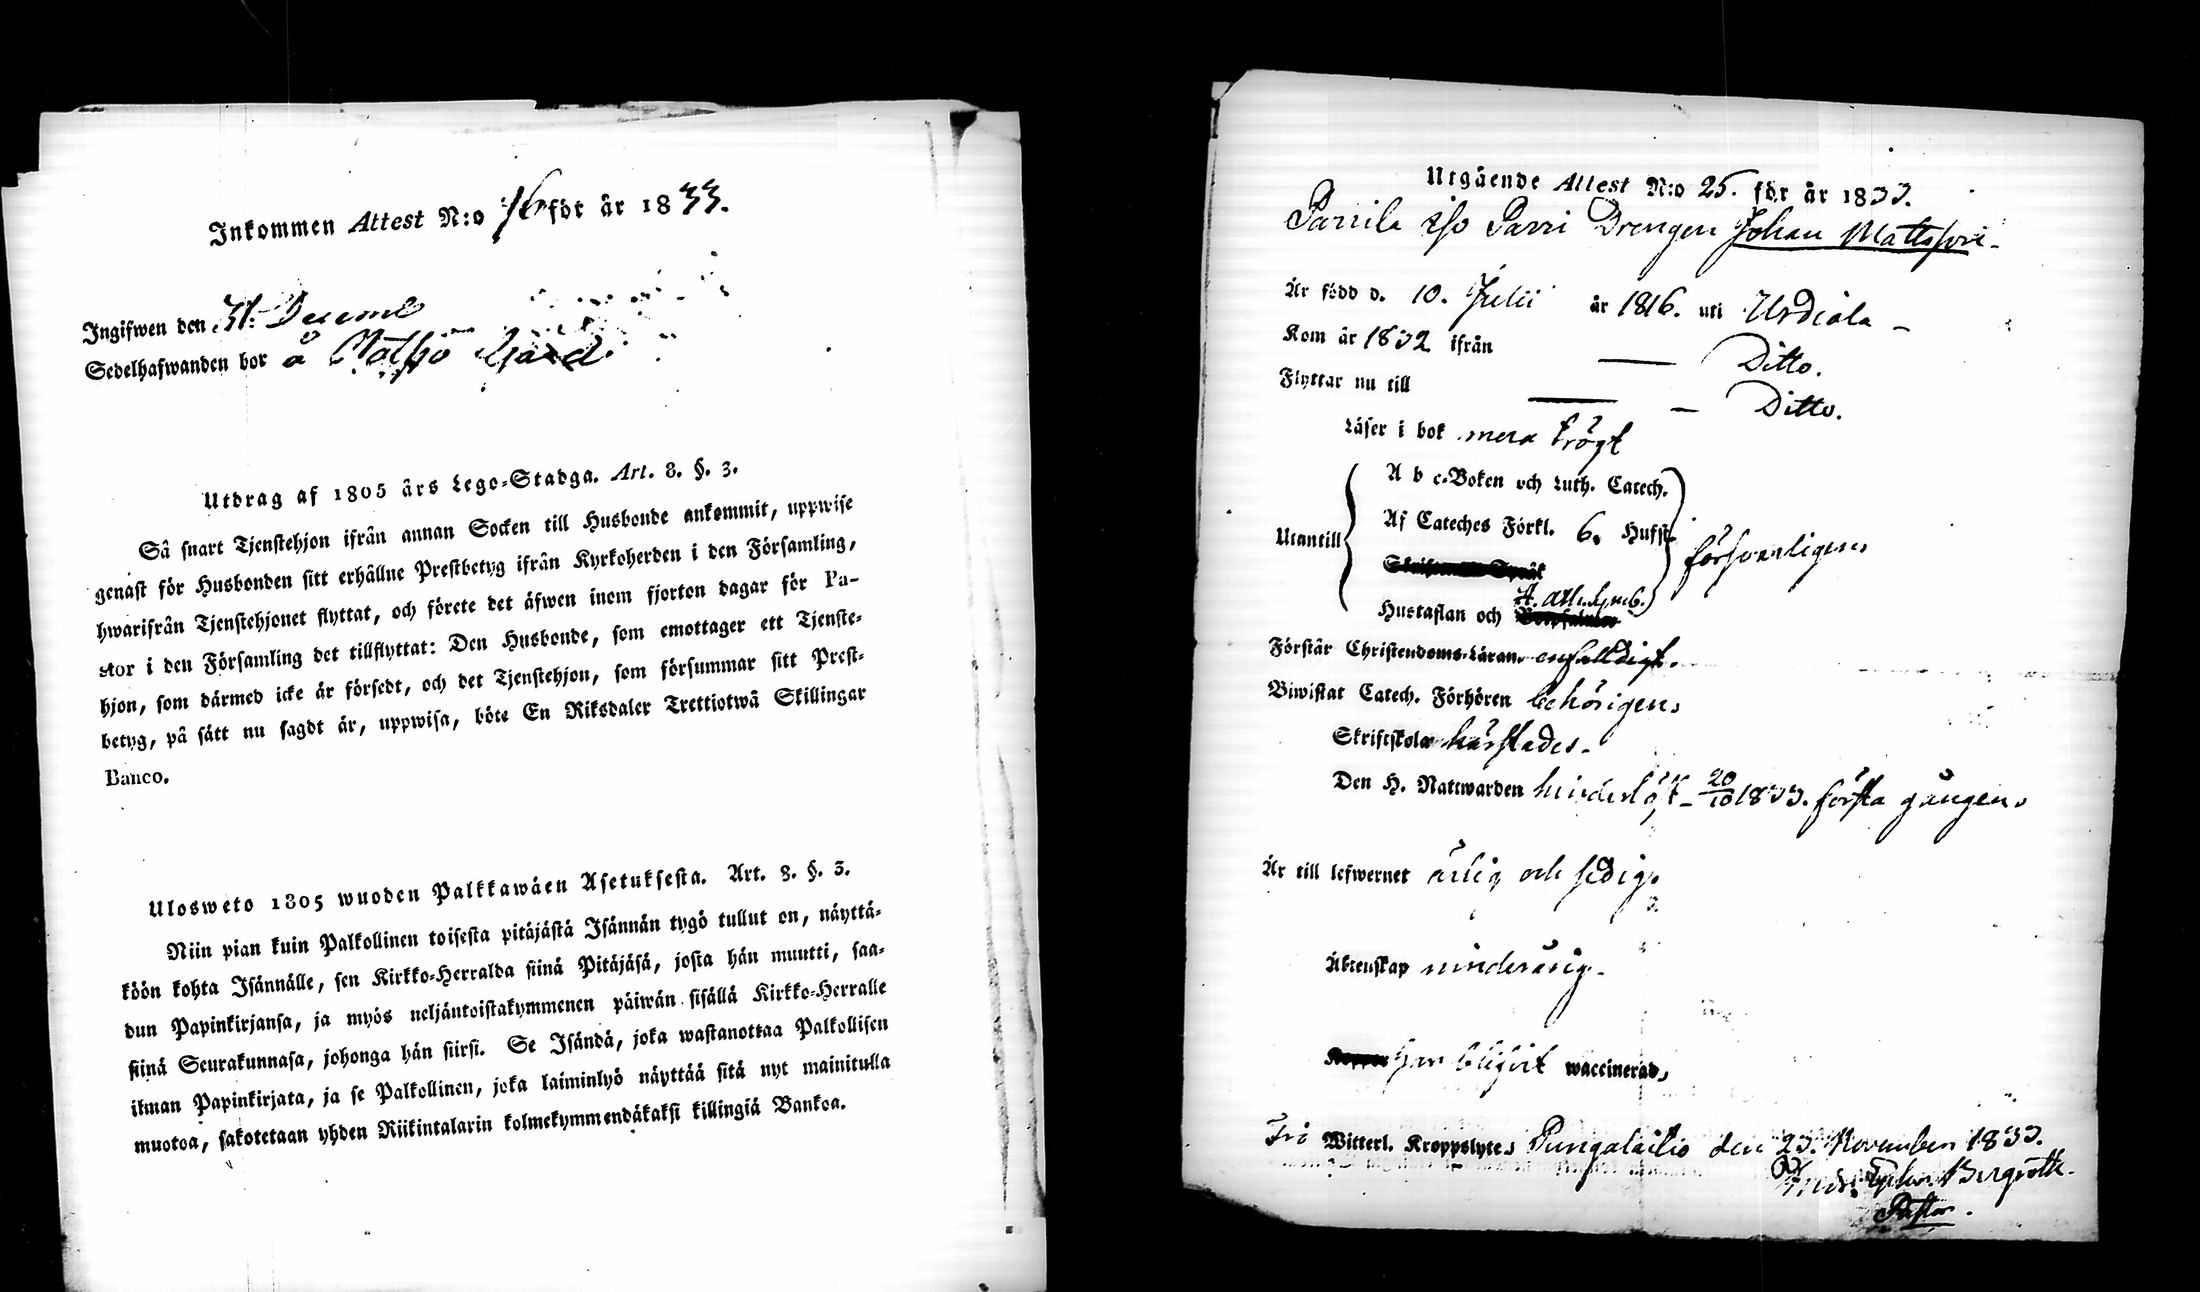 Inkommen Attest N:o 16 för år 1833.
Ingifwen den 31. Decemb
Sedelhafwanden bor å Nötsjö Gård.
Utdrag af 1805 års Lego-Stadga. Art. 8. §. 3.
Så snart Tjenstehjon ifrån annan Socken till Husbonde ankommit, uppwise
genast för Husbonden sitt erhållne Prestbetyg ifrån Kyrkoherden i den Församling,
hwarifrån Tjenstehjonet flyttat, och förete det äfwen inom fjorton dagar för Pa-
stor i den Församling det tillflyttat: Den Husbonde, som emottager ett Tjenste-
hjon, som därmed icke är försedt, och det Tjenstehjon, som försummar sitt Prest-
betyg, på sätt nu sagdt är, uppwisa, böte En Riksdaler Trettiotwå Skillingar
Banco.
Ulosweto 1805 wuoden Palkkawäen Asetuksesta. Art. 8. §. 3.
Niin pian kuin Palkollinen toisesta pitäjästä Isännän tygö tullut on, näyttä-
köön kohta Isännälle, sen Kirkko-Herralda siinä Pitäjäsä, josta hän muutti, saa-
dun Papinkirjansa, ja myös neljäntoistakymmenen päiwän sisällä Kirkko-Herralle
siinä Seurakunnasa, johonga hän siirsi. Se Isändä, joka wastanottaa Palkollisen
ilman Papinkirjata, ja se Palkollinen, joka laiminlyö näyttää sitä nyt mainitulla
muotoa, sakotetaan yhden Riikintalarin kolmekymmendäkaksi killingiä Bankoa.
Utgående Attest N:o 25. för år 1833.
Parrila Drengen Johan Mattsson.
Är född d. 10. Julii år 1816. uti Urdiala
Kom år 1832 ifrån — Ditto.
Flyttar nu till — — Ditto.
Läser i bok mera trögt
A b c-Boken och Luth. Catech.
Utantill Af Cateches Förkl. 6. Hufst. försvarligen.
Hustaflan och A. Ath. Symb.
Förstår Christendoms-Läran enfalldigt.
Biwistat Catech. Förhören behörigen.
Skriftskola härstädes.
Den H. Nattwarden 20/10 1833. första gången.
Är till lefwernet ärlig och sedig.
Äktenskap minderårig.
Har blifvit waccinerad,
Fri Witterl. Kroppslyte. Pungalaitio den 23. November 1833.
Bergroth.
Pastor.